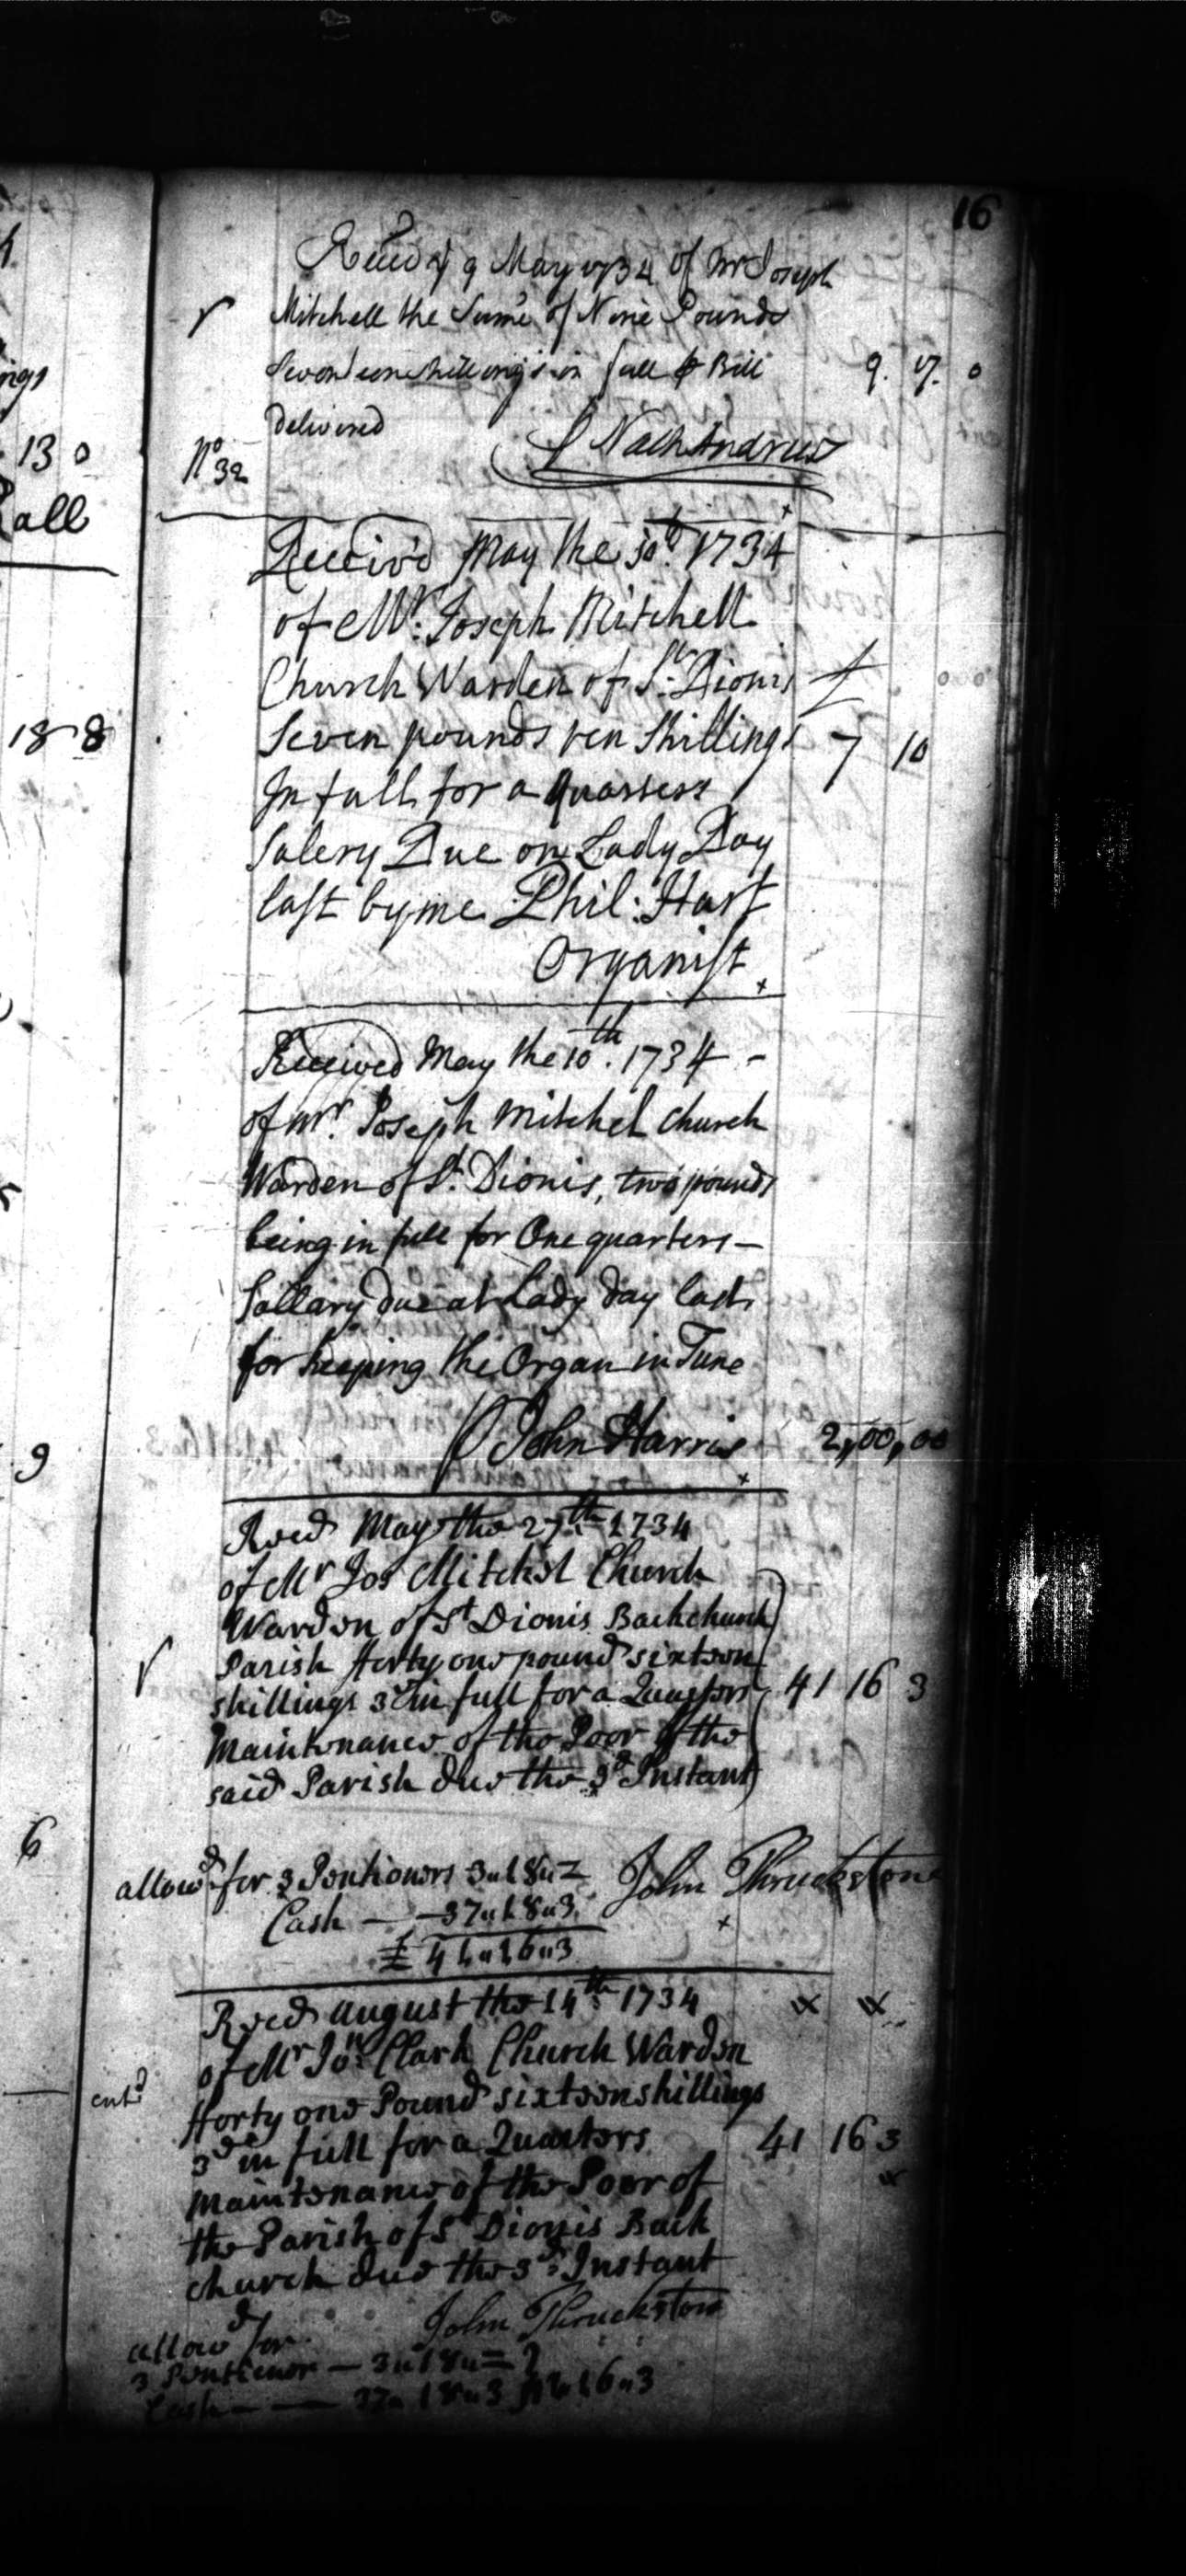 16
Recd ye 9 May 1734 of Mr Joseph
Mitchell the Sume of Nine Pounds
Seventeen shillings in full p Bill 9. 17. 0
delivered
No 32
Nath Andrews
Received May the 10th 1734
of Mr: Joseph Mitchell
Church Warden of St: Dionis £
Seven pounds ten Shillings 7 10
In full for a Quarters
Salery Due on Lady Day
last by me Phil: Hart
Organist
Received May the 10th. 1734 -
of Mr. Joseph Mitchel Church
Warden of St. Dionis, two pounds
being in full for One quarters -
Sallary due at Lady day last
for keeping the Organ in Tune
John Harris 2,00,00
Recd May the 27th 1734
of Mr Jos Mitchel Church
Warden of St Dionis Backchurch
Parish fforty one pound sixteen
shillings 3d in full for a Quarters 41 16 3
Maintenance of the Poor of the
said Parish due the 3d Instant
allowd for 3 Pentioners 3"18"= John Thruckstone
Cash — 37"18"3
£ 41"16"3
Recd August the 14th 1734
of Mr Jon: Clark Church Warden
entd
fforty one Pound sixteen shillings
3d in full for a Quarters 41 16 3
Maintenance of the Poor of
the Parish of St Dionis Back
church due the 3d: Instant
John Thruckstone
allowd for
3 Pentioner — 3"18"=
Cash — 37"18"3 41"16"3
13 0
all
18 8
9
6